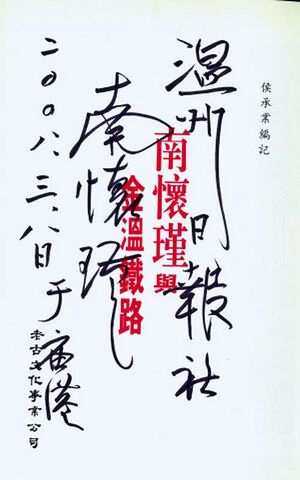 侯承業編記
温州日報社
南懷瑾與
金溫鐵路
南懷瑾
二〇〇八、三、八日于庙港
老古文化事業公司